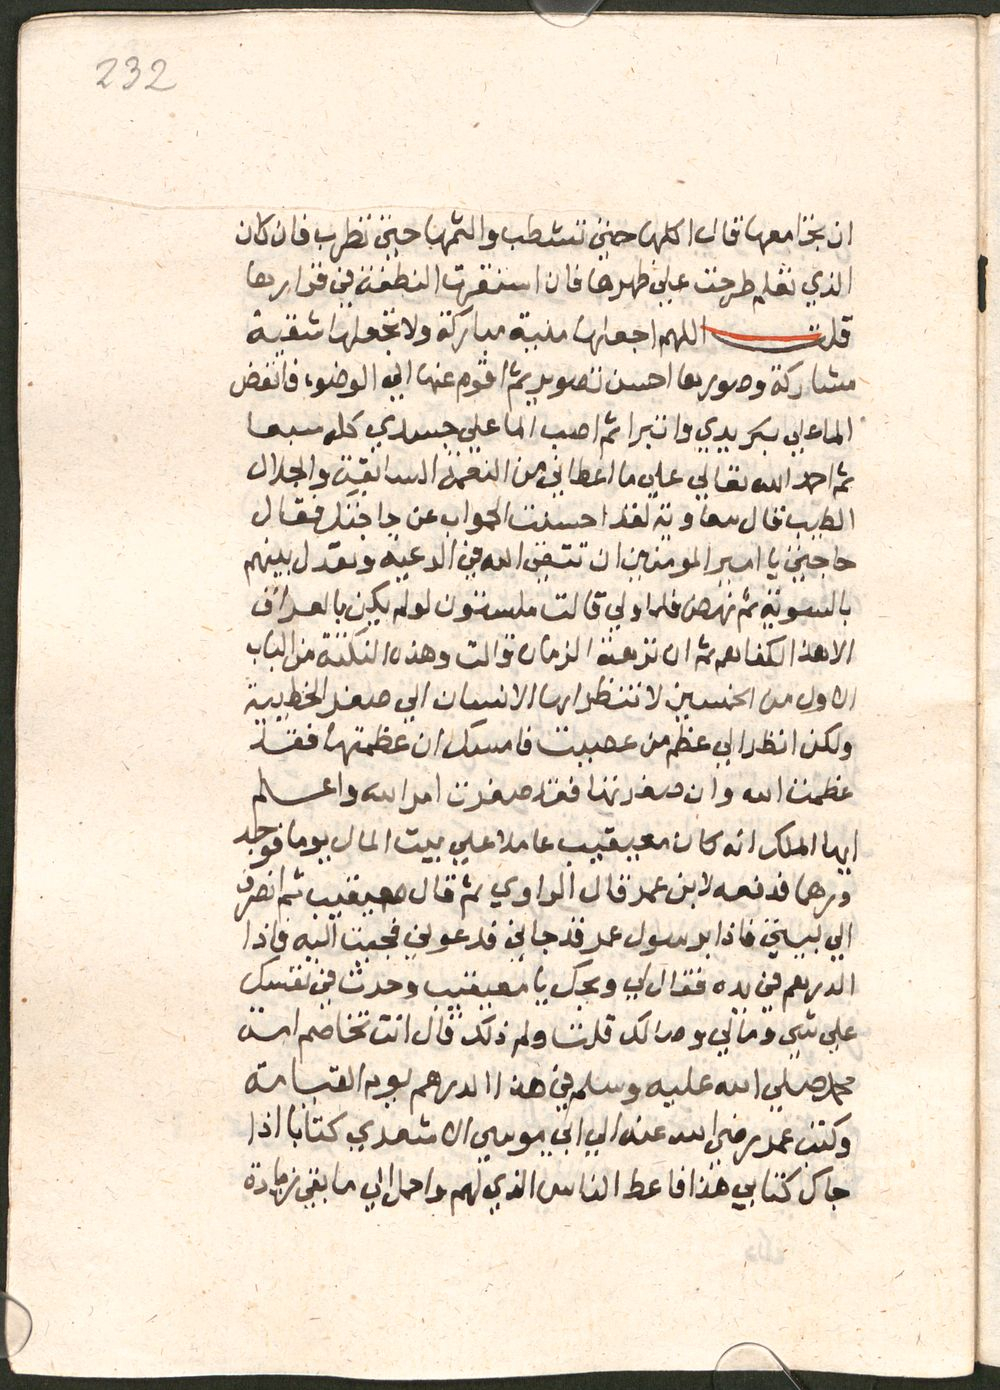 232
ان تجامعها قال اكلمها حتي تنشط والثمها حتي تطرب فان كان
الذي تعلم طرحت علي ظهرها فان استقرت النطفة في قرارها
قلت اللهم اجعلها منية مباركة ولا تجعلها شقية
مشاركة وصورها احسن تصوير ثم اقوم عنها الي الوضوء فانفض
الما علي يدي ثم اصب الما علي جسدي كله سبعا
ثم احمد الله تعالي علي ما اعطاني من النعمة السابقة والحلال
الطيب قال معاوية لقد احسنت الجواب عن حاجتك فقال
حاجتي يا امير المومنين ان تتقي الله في الرعية وتعدل بينهم
بالسوية ثم نهض فلما ولي قالت ميسون لو لم يكن بالعراق
الا هذا لكفاهم ثم ان نزهة الزمان قالت وهذه النكتة من الباب
الاول من لا تنظر ايها الانسان الي صغر الخطيية
ولكن انظر الي عظم من عصيت فامسك ان عظمتها فقد
عظمت الله وان صغرتها فقد صغرت امر الله واعلم
ايها الملك انه كان معيقيب عاملا علي بيت المال يوما فوجد
درهما فدفعه لابن عمر قال الراوي ثم قال معيقيب ثم انصرف
الي بيتي فاذا برسول عمر قد جاني فدعوني فجيت اليه فاذا
الدرهم في يده فقال لي ويحك يا معيقيب وجدت في نفسك
علي شي ومالي ومالك قلت ولم ذلك قال انت تخاصم امة
محمد صلي الله عليه وسلم في هذا الدرهم يوم القيامة
وكتب عمر رضي الله عنه الي ابي موسي الاشعري كتابا اذا
جاك كتابي هذا فاعط الناس الذي لهم واحمل الي ما بقي زيادة